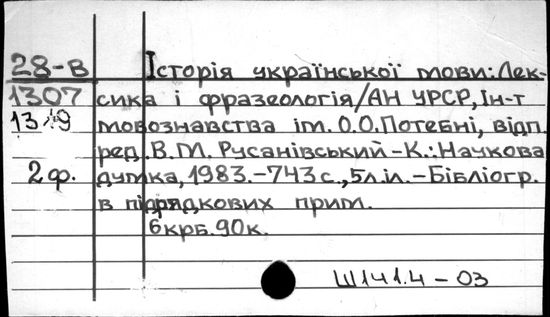 28-В Історія української мови: Лек-
1307 сика і фразеологія/АН УРСР, Ін-т
мовознавства ім. О.О.Потебні, відп.
ред. В.М. Русанівський-К.: Наукова
2ф. думка, 1983.-743 с., 5л.іл.-Бібліогр.
в підрядкових прим.
6крб.90к.
Ш141.4-03